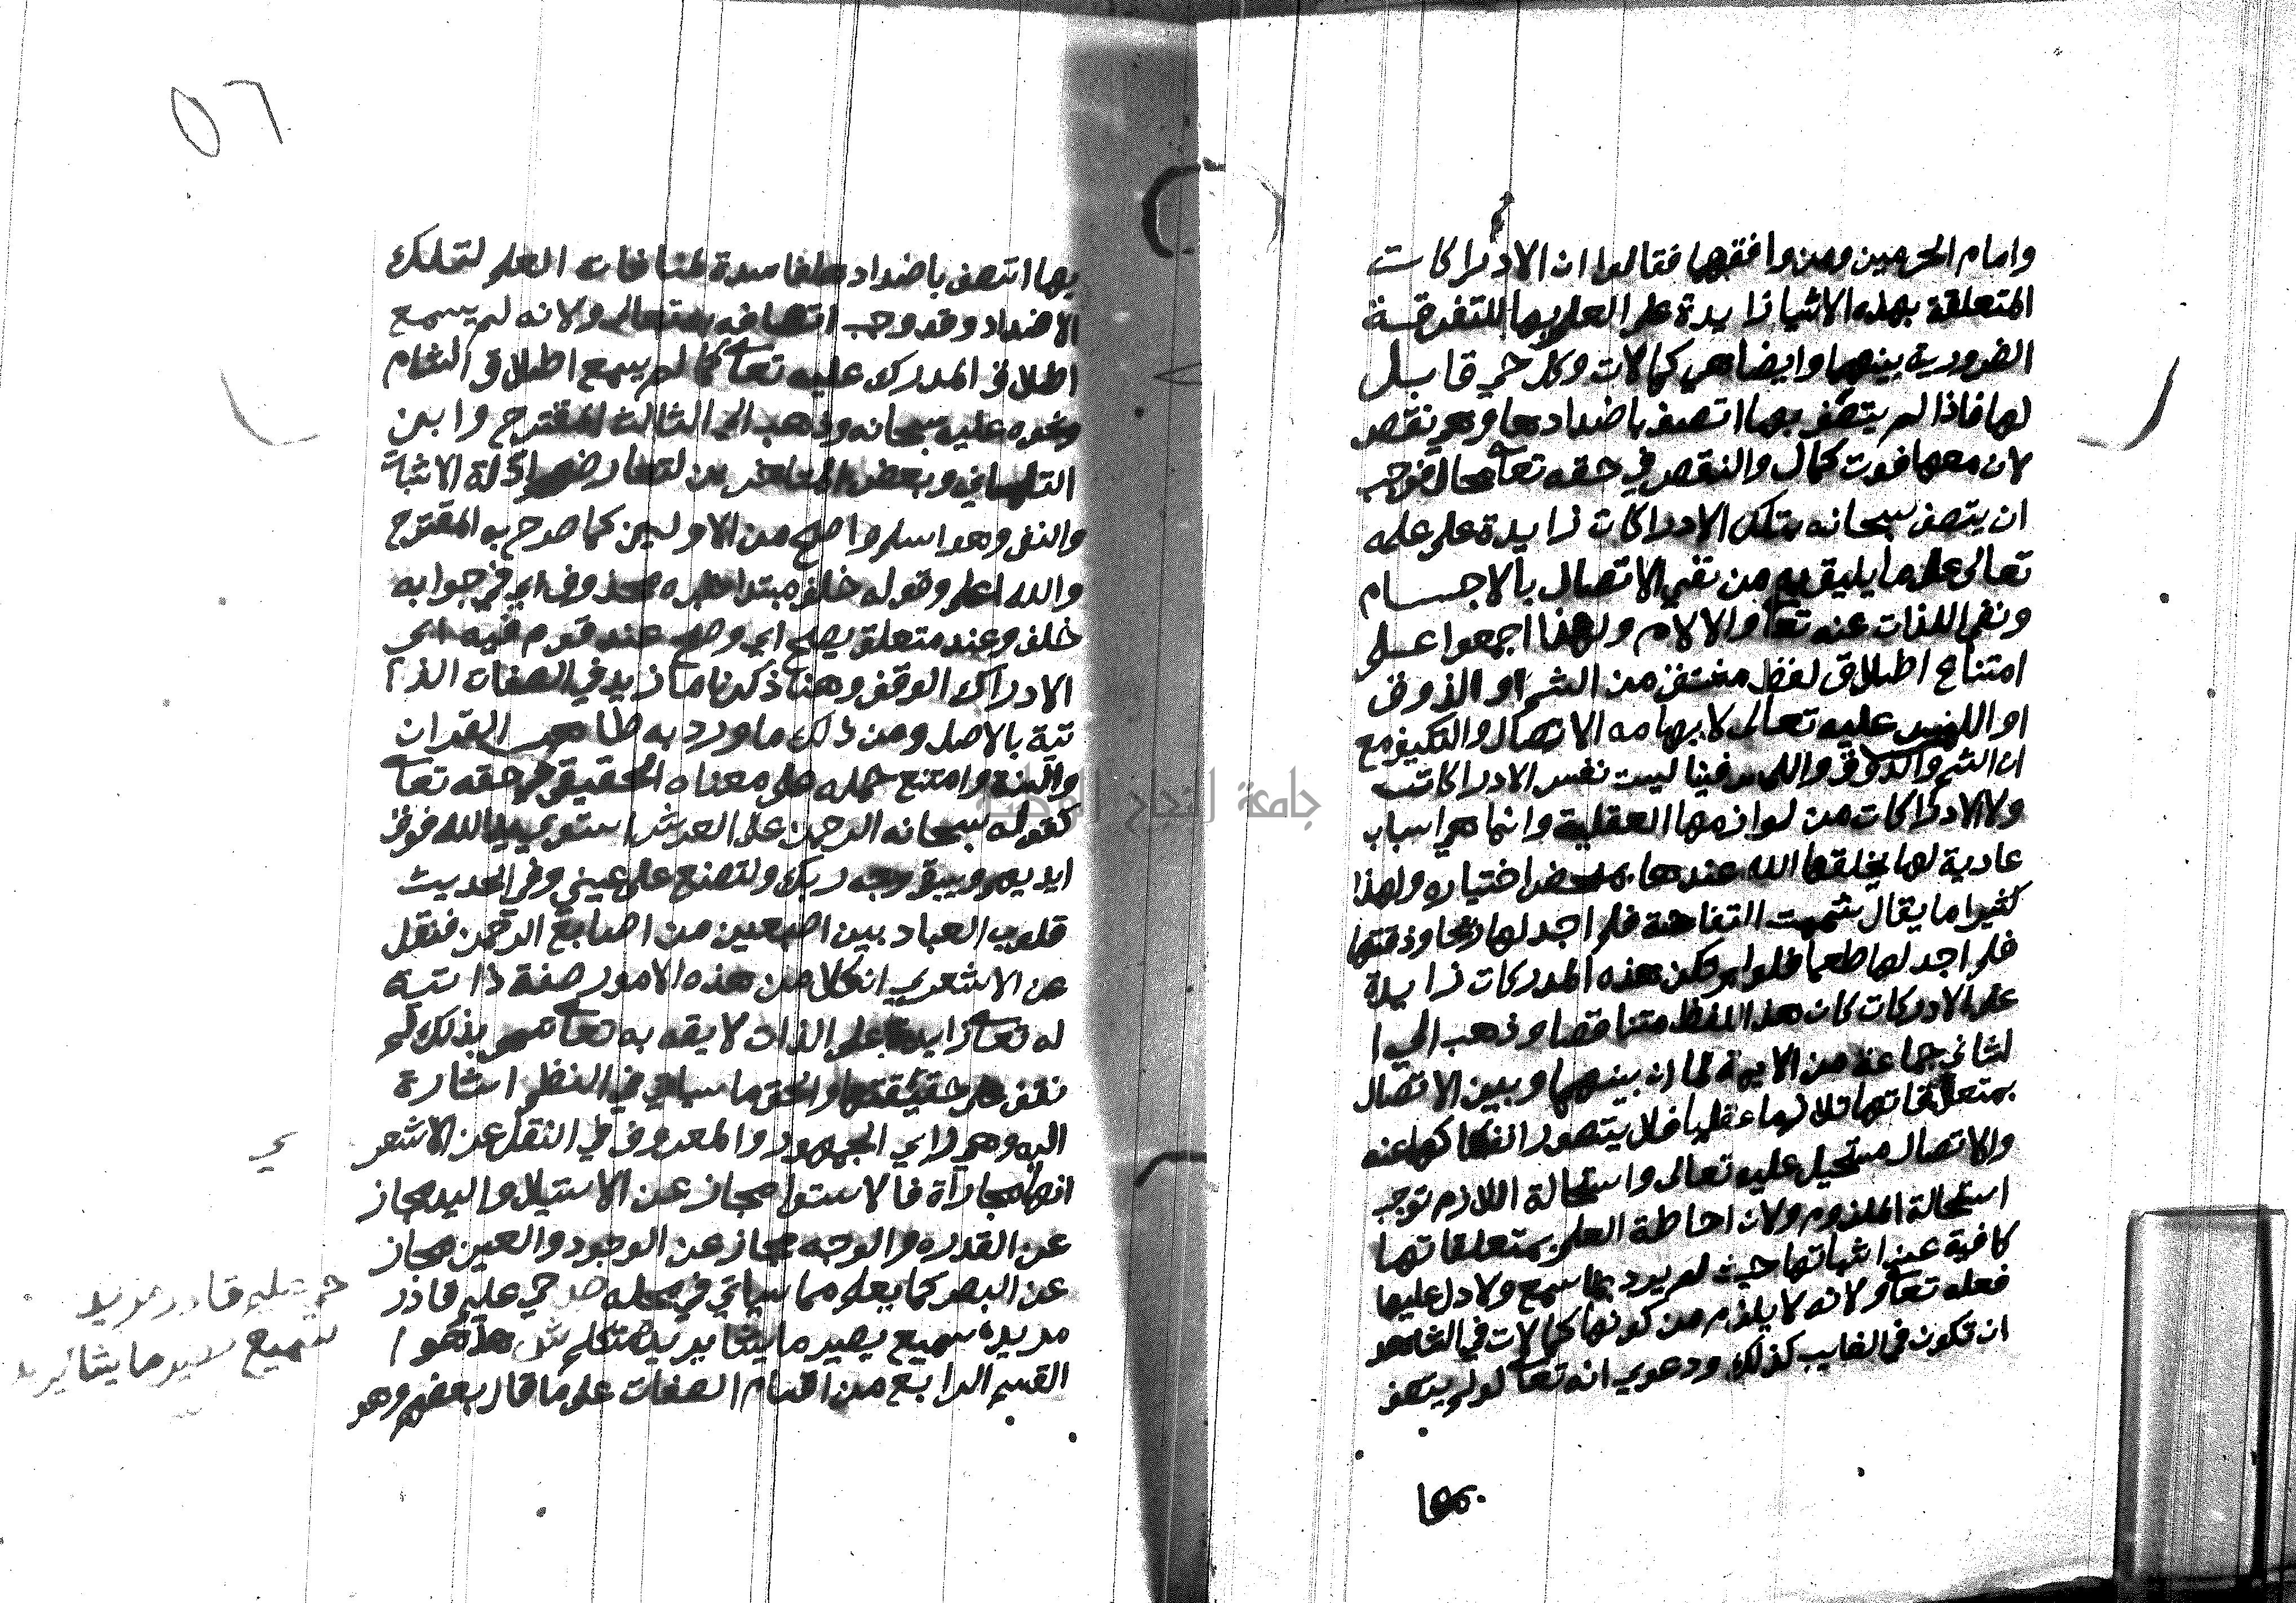 وامام الحرمين ومن وافقهما فقالوا ان الادراكات
المتعلقة بهذه الاشيا زايدة على العلم بها للتفرقة
الضرورية بينهما وايضا هي كمالات وكل حي قابل
لها فاذا لم يتصف بها اتصف باضدادها وهي نقص
لان معها فوت كمال والنقص في حقه تعا محال فوجب
ان يتصف سبحانه بتلك الادراكات زايدة على علمه
تعالى على ما يليق به من نفي الاتصال بالاجسام
ونفي اللذات عنه تعا والالام ولهذا اجمعوا على
امتناع اطلاق لفظ مشتق من الشم او الذوق
او اللمس عليه تعالى لايهامه الاتصال والتكييف مع
ان الشم والذوق واللمس فينا ليست نفس الادراكات
ولا الادراكات من لوازمها العقلية وانما هي اسباب
عادية لها يخلقها الله عندها بمحض اختياره ولهذا
كثيرا ما يقال شممت التفاحة فلم اجد لها ريحا وذقتها
فلم اجد لها طعما فلو لم تكن هذه المدركات زايدة
على الادركات كان هذا اللفظ متناقصا وذهب الى ا
لثاني جماعة من الايمة لما ان بينهما وبين الاتصال
بمتعلقاتها تلازما عقليا فلا يتصور انفكاكها عنه
والاتصال مستحيل عليه تعالى واستحالة اللازم توجب
استحالة الملزوم ولان احاطة العلم بمتعلقاتها
كافية عن اثباتها حيث لم يرد بها سمع ولا دل عليها
فعله تعا ولانه لا يلزم من كونها كمالات في الشاهد
ان تكون في الغايب كذلك ودعوي انه تعا لو لم يتصف
بها
٥٦
بها اتصف باضدادها فاسدة لمنافات العلم لتلك
الاضداد وقد وجب اتصافه به تعالى ولانه لم يسمع
اطلاق المدرك عليه تعا كما لم يسمع اطلاق الشام
ونحوه عليه سبحانه وذهب الى الثالث المقترح وابن
التلمساني وبعض المتاخرين لتعارض ادلة الاثبات
والنفي وهو اسلم واصح من الاولين كما صرح به المقترح
والله اعلم وقوله خلف مبتدا خبره محذوف اي في جوابه
خلف وعند متعلق يصح اي وصح عند قوم فيه اى
الادراك الوقف وهنا ذكرنا ما زيد في الصفات الذا
تية بالاصل ومن ذلك ما ورد به ظاهر القران
والسنة وامتنع حمله على معناه الحقيقي في حقه تعا
كقوله سبحانه الرحمن على العرش استوي يد الله فوق
ايديهم ويبقى وجه ربك ولتصنع على عيني وفي الحديث
قلوب العباد بين اصبعين من اصابع الرحمن فنقل
عن الاشعري ان كلا من هذه الامور صفة ذاتية
له تعا زايدة على الذات لايقة به تعا سمي بذلك لم
نقف على حقيقتها والحق ما سياتي في النظم اشارة
اليه وهي راي الجمهور والمعروف في النقل عن الاشعر
ي
انها مجازاة فالاستوا مجاز عن الاستيلا واليد مجاز
عن القدره والوجه مجاز عن الوجود والعين مجاز
عن البصر كما يعلم مما سياتي في محله ص حي عليم قادر
مريده سميع بصير ما يشا يريد متكلم ش هذا هو ا
القسم الرابع من اقسام الصفات على ما قال بعضهم وهو
حي عليم قادر مريد
سميع بصير ما يشا يريد
جامعة النجاح الوطنية